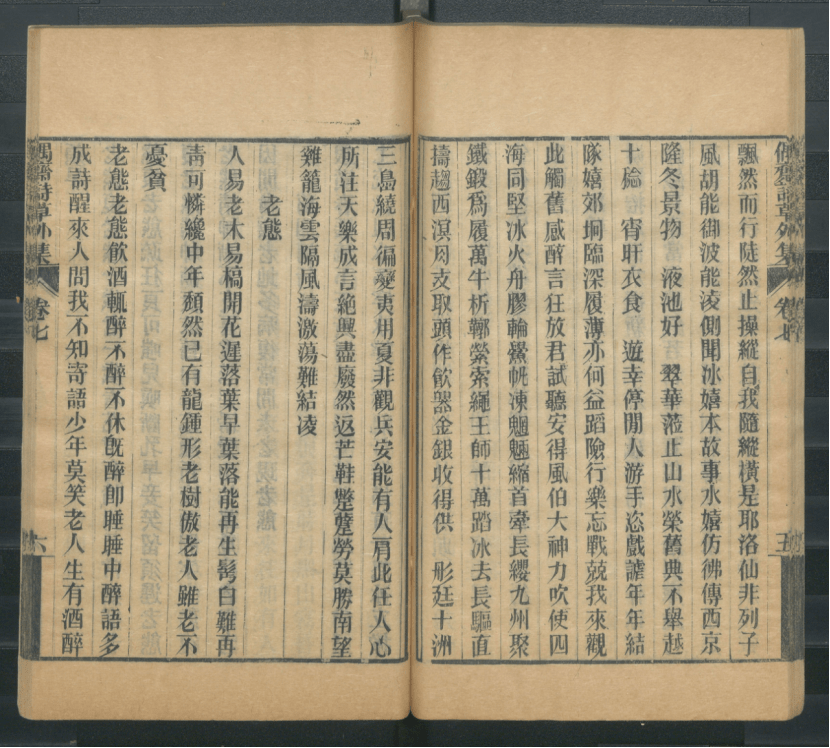 飄然而行陡然止操縱自我隨縱橫是耶洛仙非列子
風胡能御波能淩側聞冰嬉本故事水嬉仿彿傳西京
隆冬景物 液池好 翠華蒞止山水榮舊典不舉越
十稔 宵旰衣食 遊幸停閒人游手恣戲謔年年結
隊嬉郊坰臨深履薄亦何益蹈險行樂忘戰兢我來觀
此觸舊感醉言狂放君試聽安得風伯大神力吹使四
海同堅冰火舟膠輪鯊帆凍魍魎縮首牽長纓九州聚
鐵鍛爲履萬牛析鞹縈索繩王師十萬蹈冰去長驅直
擣趨西溟月支取頭作飲器金銀收得供 彤廷十洲
三島繞周徧變夷用夏非觀兵安能有人肩此任人心
所注天樂成言絶興盡廢然返芒鞋蹩躠勞莫勝南望
雞籠海雲隔風濤激蕩難結凌
老態
人易老木易槁開花遲落葉早葉落能再生髩白難再
靑可憐纔中年頽然已有龍鍾形老樹傲老人雖老不
憂貧
老態老態飮酒輒醉不醉不休旣醉卽睡睡中醉語多
成詩醒來人問我不知寄語少年莫笑老人生有酒醉
偶齋詩草外集
卷七
六